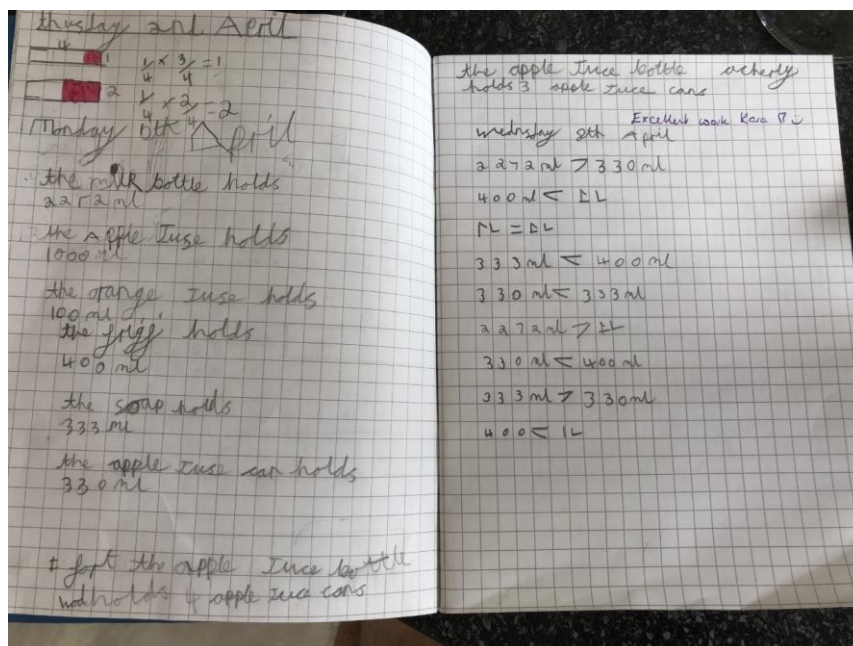 thusday 2nd April
4
1
1/4 x 3/4 = 1
2
1/4 x 2/4 = 2
Monday 6th April
the milk bottle holds
2272ml
the Apple Iuse holds
1000ml
the orange Iuse holds
100ml
the holds
400ml
the soap holds
333ml
the apple Iuse can holds
330ml
I the apple Iuce bottle
holds 4 apple Iuce cans
the apple Iuce bottle acherly
holds 3 apple Iuce cans
Excellent work Kara
wednsday 8th April
2272ml > 330ml
400ml < 1L
1L = 1L
333ml < 400ml
330ml < 333ml
2272ml > 1L
330ml < 400ml
333ml > 330ml
400 < 1L